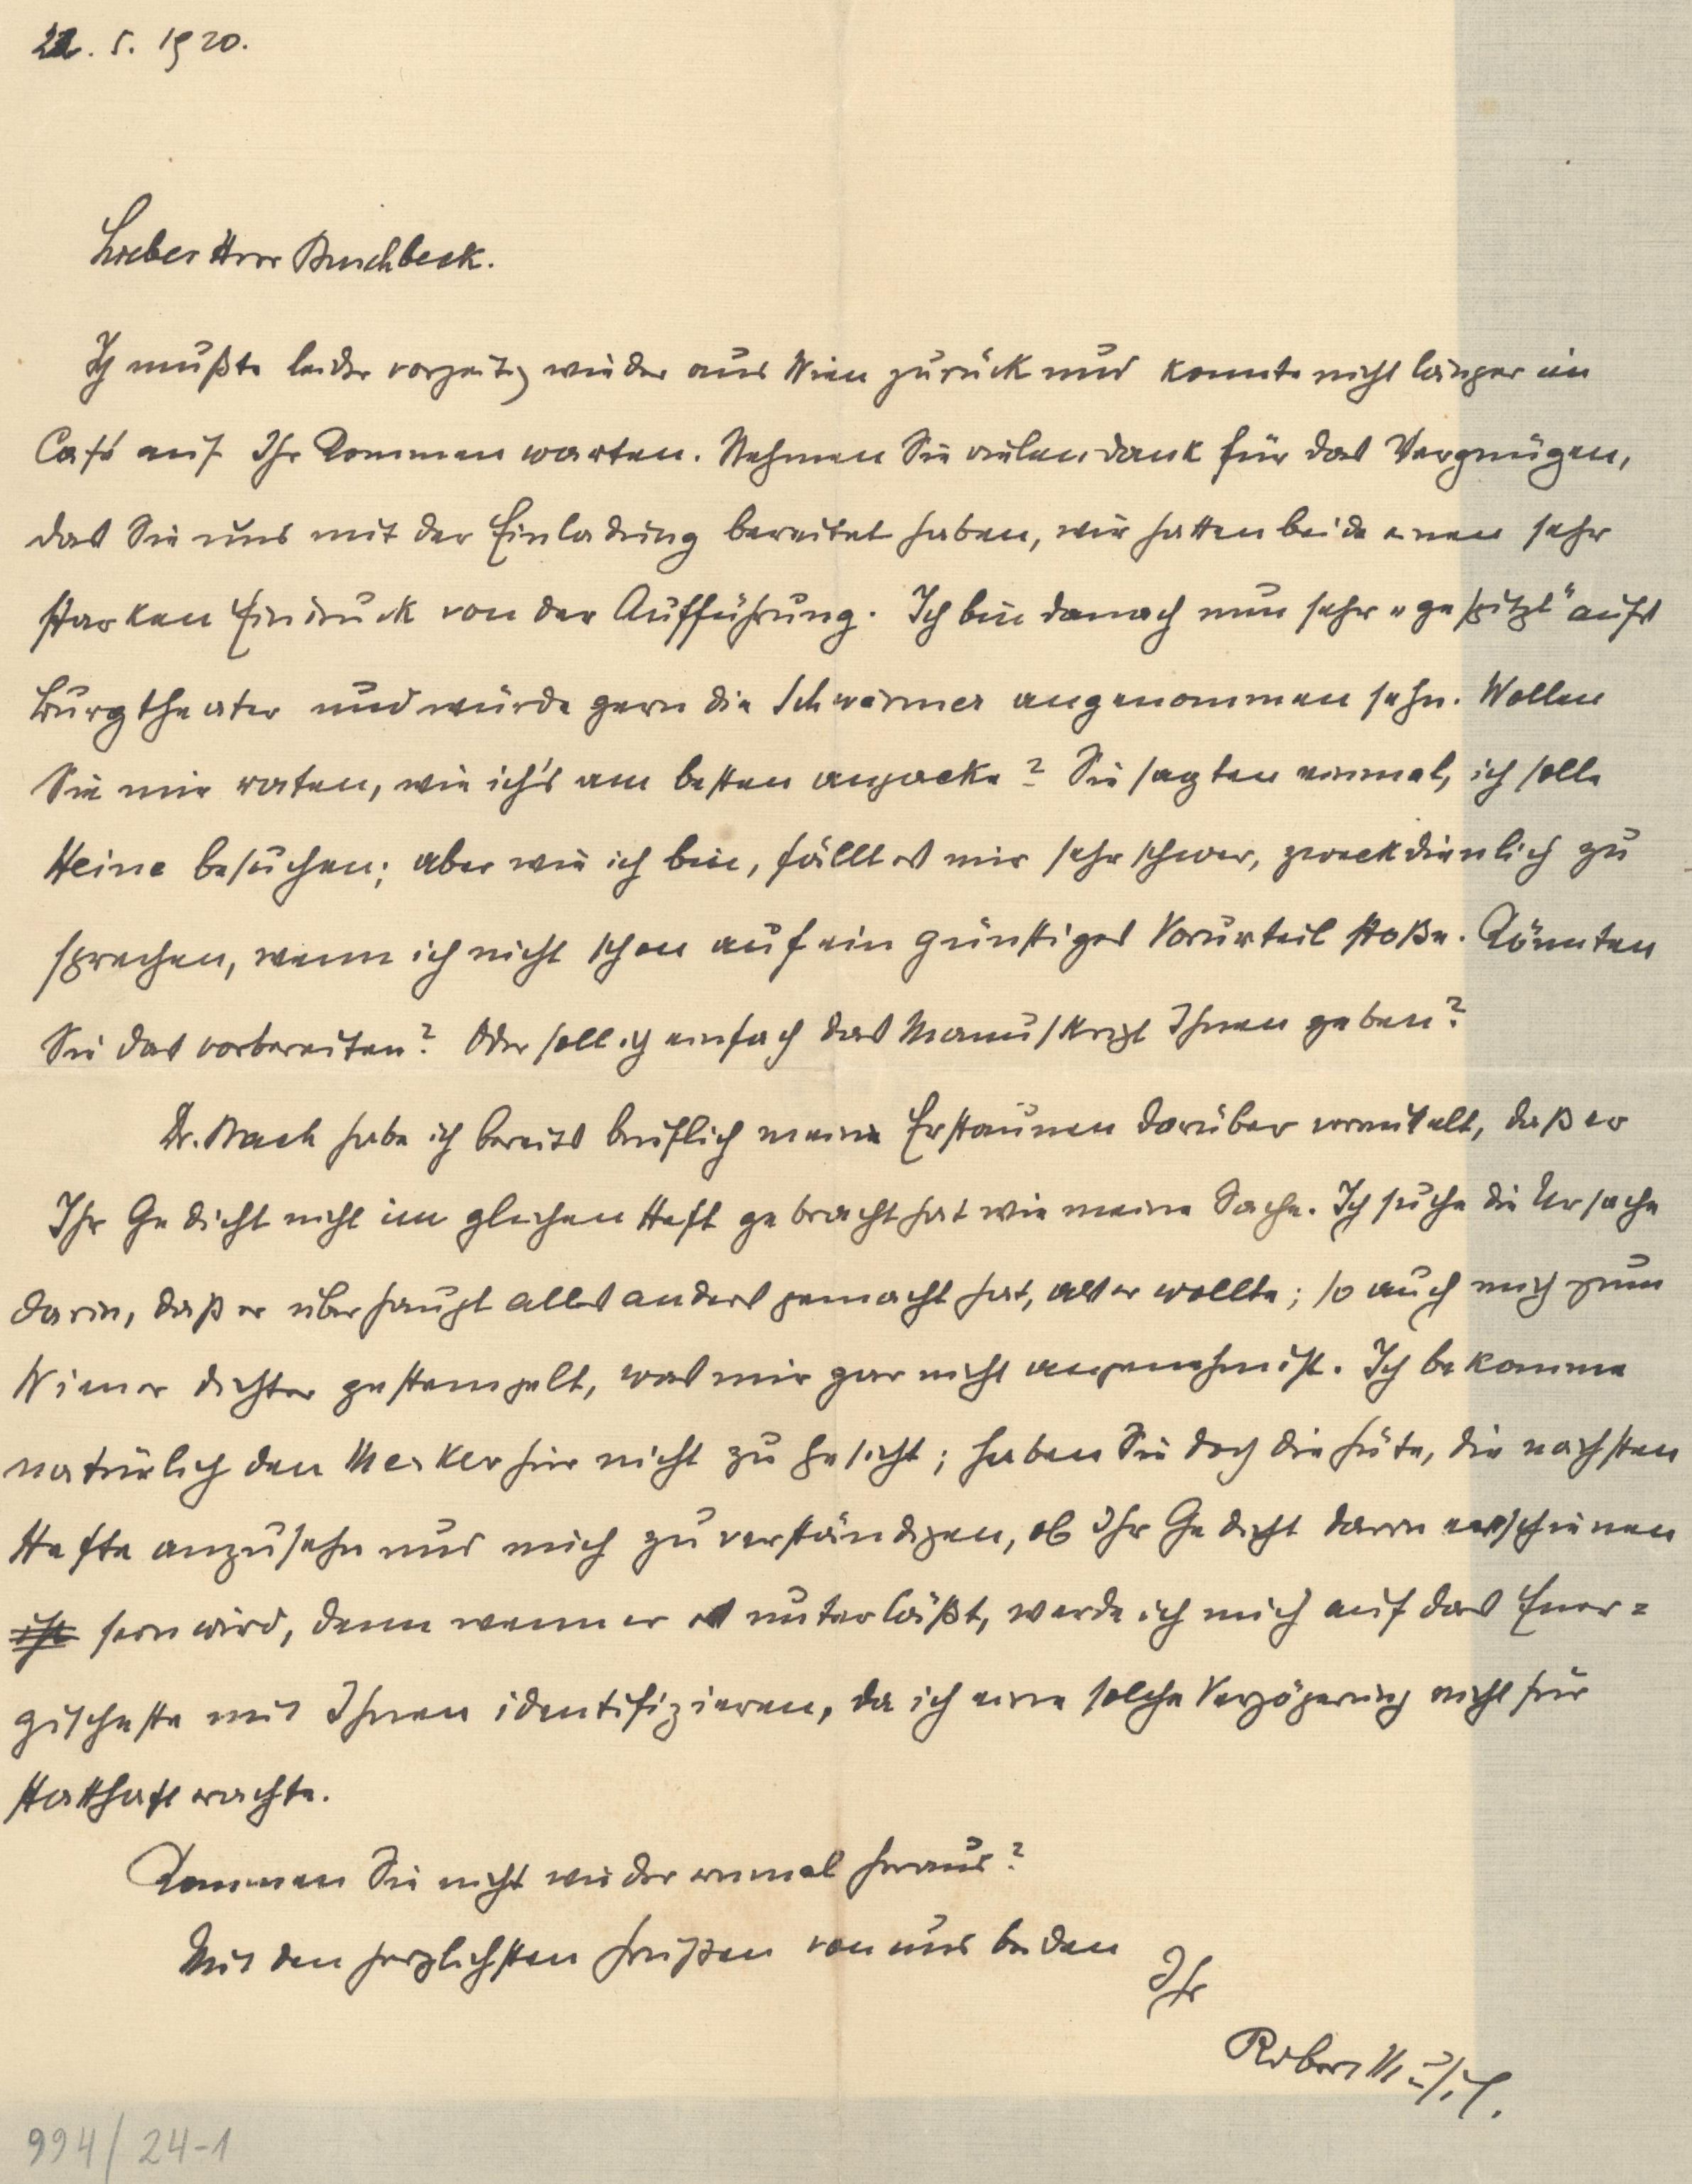 22. 5. 1920.
Lieber Herr Buschbeck.
Ich mußte leider vorzeitig wieder aus Wien zurück und konnte nicht länger im
Café auf Ihr Kommen warten. Nehmen Sie vielen Dank für das Vergnügen,
das Sie uns mit der Einladung bereitet haben, wir hatten beide einen sehr
starken Eindruck von der Aufführung. Ich bin danach nun sehr „gespitzt“ aufs
Burgtheater und würde gern die Schwärmer angenommen sehn. Wollen
Sie mir raten, wie ich's am besten anpacke? Sie sagten einmal, ich solle
Heine besuchen; aber wie ich bin, fällt es mir sehr schwer, zweckdienlich zu
sprechen, wenn ich nicht schon auf ein günstiges Vorurteil stoße. Könnten
Sie das vorbereiten? Oder soll ich einfach das Manuskript Ihnen geben?
Dr. Bach habe ich bereits brieflich meine Erstaunen darüber vermittelt, daß er
Ihr Gedicht nicht im gleichen Heft gebracht hat wie meine Sache. Ich suche die Ursache
darin, daß er überhaupt alles anders gemacht hat, als er wollte; so auch mich zum
Wiener Dichter gestempelt, was mir gar nicht angenehm ist. Ich bekomme
natürlich den Merker hier nicht zu Gesicht; haben Sie doch die Güte, die nächsten
Hefte anzusehn und mich zu verständigen, ob Ihr Gedicht darin erschienen
ist sein wird, denn wenn er es unterläßt, werde ich mich auf das Ener=
gischeste mit Ihnen identifizieren, da ich eine solche Verzögerung nicht für
statthaft erachte.
Kommen Sie nicht wieder einmal heraus?
Mit den herzlichsten Grüßen von uns beiden
Ihr
Robert Musil.
994/24-1